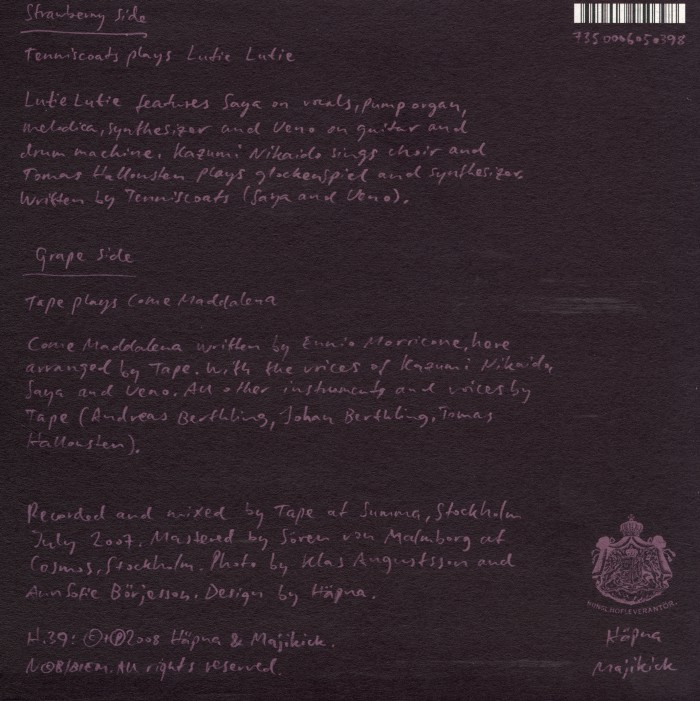 Strawberry Side
7350006050398
Tenniscoats plays Lutie Lutie
Lutie Lutie features Saya on vocals, pump organ,
melodica, synthesizer and Ueno on guitar and
drum machine. Kazumi Nikaido sings choir and
Tomas Hallonsten plays glockenspiel and synthesizer.
Written by Tenniscoats (Saya and Ueno).
Grape Side
Tape plays Come Maddalena
Come Maddalena written by Ennio Morricone, here
arranged by Tape. With the voices of Kazumi Nikaido,
Saya and Ueno. All other instruments and voices by
Tape (Andreas Berthling, Johan Berthling, Tomas
Hallonsten).
Recorded and mixed by Tape at Summa, Stockholm
July 2007. Mastered by Sören von Malmborg at
Cosmos, Stockholm. Photo by Klas Augustsson and
AnnSofie Börjesson. Design by Häpna.
KUNGL.HOFLEVERANTÖR.
H.39: ©+℗2008 Häpna & Majikick.
N©B/BIEM. All rights reserved.
Häpna
Majikick